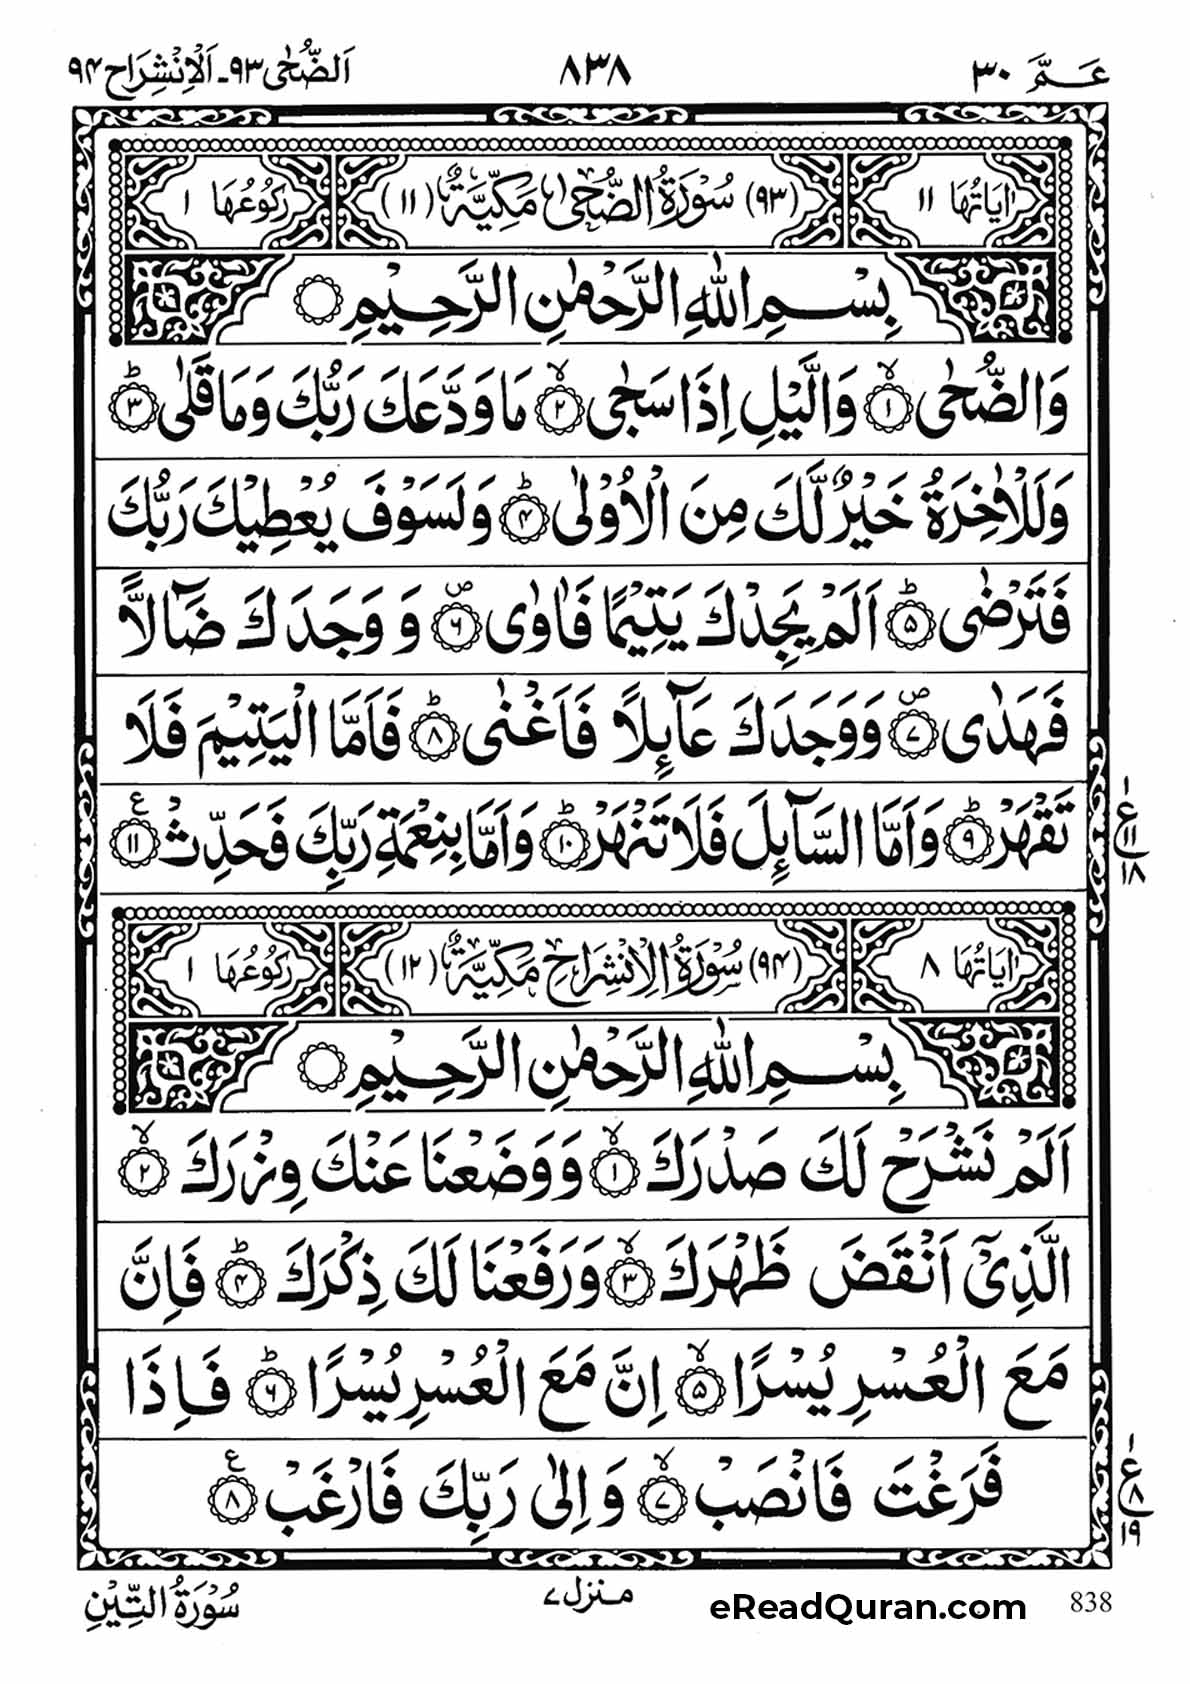 عَـمَّ ٣٠ ٨٣٨ اَلضُّحٰى ٩٣ـ اَلْاِنْشِرَاح ٩٤
اٰيَاتُهَا ١١ (٩٣) سُوْرَةُ الضُّحٰى مَكِّيَّةٌ (١١) رَكُوْعُهَا ١
بِسْمِ اللّٰهِ الرَّحْمٰنِ الرَّحِيْمِ
وَالضُّحٰى ۙ‏﴿۱﴾ وَالَّيْلِ اِذَا سَجٰى ۙ‏﴿۲﴾ مَا وَدَّعَكَ رَبُّكَ وَمَا قَلٰى ؕ‏﴿۳﴾
وَلَلْاٰخِرَةُ خَيْرٌ لَّكَ مِنَ الْاُوْلٰى ؕ‏﴿۴﴾ وَلَسَوْفَ يُعْطِيْكَ رَبُّكَ
فَتَرْضٰى ؕ‏﴿۵﴾ اَلَمْ يَجِدْكَ يَتِيْمًا فَاٰوٰى ۪‏﴿۶﴾ وَ وَجَدَكَ ضَآلًّا
فَهَدٰى ۪‏﴿۷﴾ وَوَجَدَكَ عَآئِلًا فَاَغْنٰى ؕ‏﴿۸﴾ فَاَمَّا الْيَتِيْمَ فَلَا
تَقْهَرْ ؕ‏﴿۹﴾ وَاَمَّا السَّآئِلَ فَلَا تَنْهَرْ ؕ‏﴿۱۰﴾ وَاَمَّا بِنِعْمَةِ رَبِّكَ فَحَدِّثْ ‏﴿۱۱﴾ ع
١ ع ١١ ١٨
اٰيَاتُهَا ٨ (٩٤) سُوْرَةُ الْاِنْشِرَاح مَكِّيَّةٌ (١٢) رَكُوْعُهَا ١
بِسْمِ اللّٰهِ الرَّحْمٰنِ الرَّحِيْمِ
اَلَمْ نَشْرَحْ لَكَ صَدْرَكَ ۙ‏﴿۱﴾ وَوَضَعْنَا عَنْكَ وِزْرَكَ ۙ‏﴿۲﴾
الَّذِىْۤ اَنْقَضَ ظَهْرَكَ ۙ‏﴿۳﴾ وَرَفَعْنَا لَكَ ذِكْرَكَ ؕ‏﴿۴﴾ فَاِنَّ
مَعَ الْعُسْرِ يُسْرًا ۙ‏﴿۵﴾ اِنَّ مَعَ الْعُسْرِ يُسْرًا ؕ‏﴿۶﴾ فَاِذَا
فَرَغْتَ فَانْصَبْ ۙ‏﴿۷﴾ وَاِلٰى رَبِّكَ فَارْغَبْ ‏﴿۸﴾ ع
١ ع ٨ ١٩
سُوْرَةُ التِّيْنِ
منزل ٧
eReadQuran.com
838